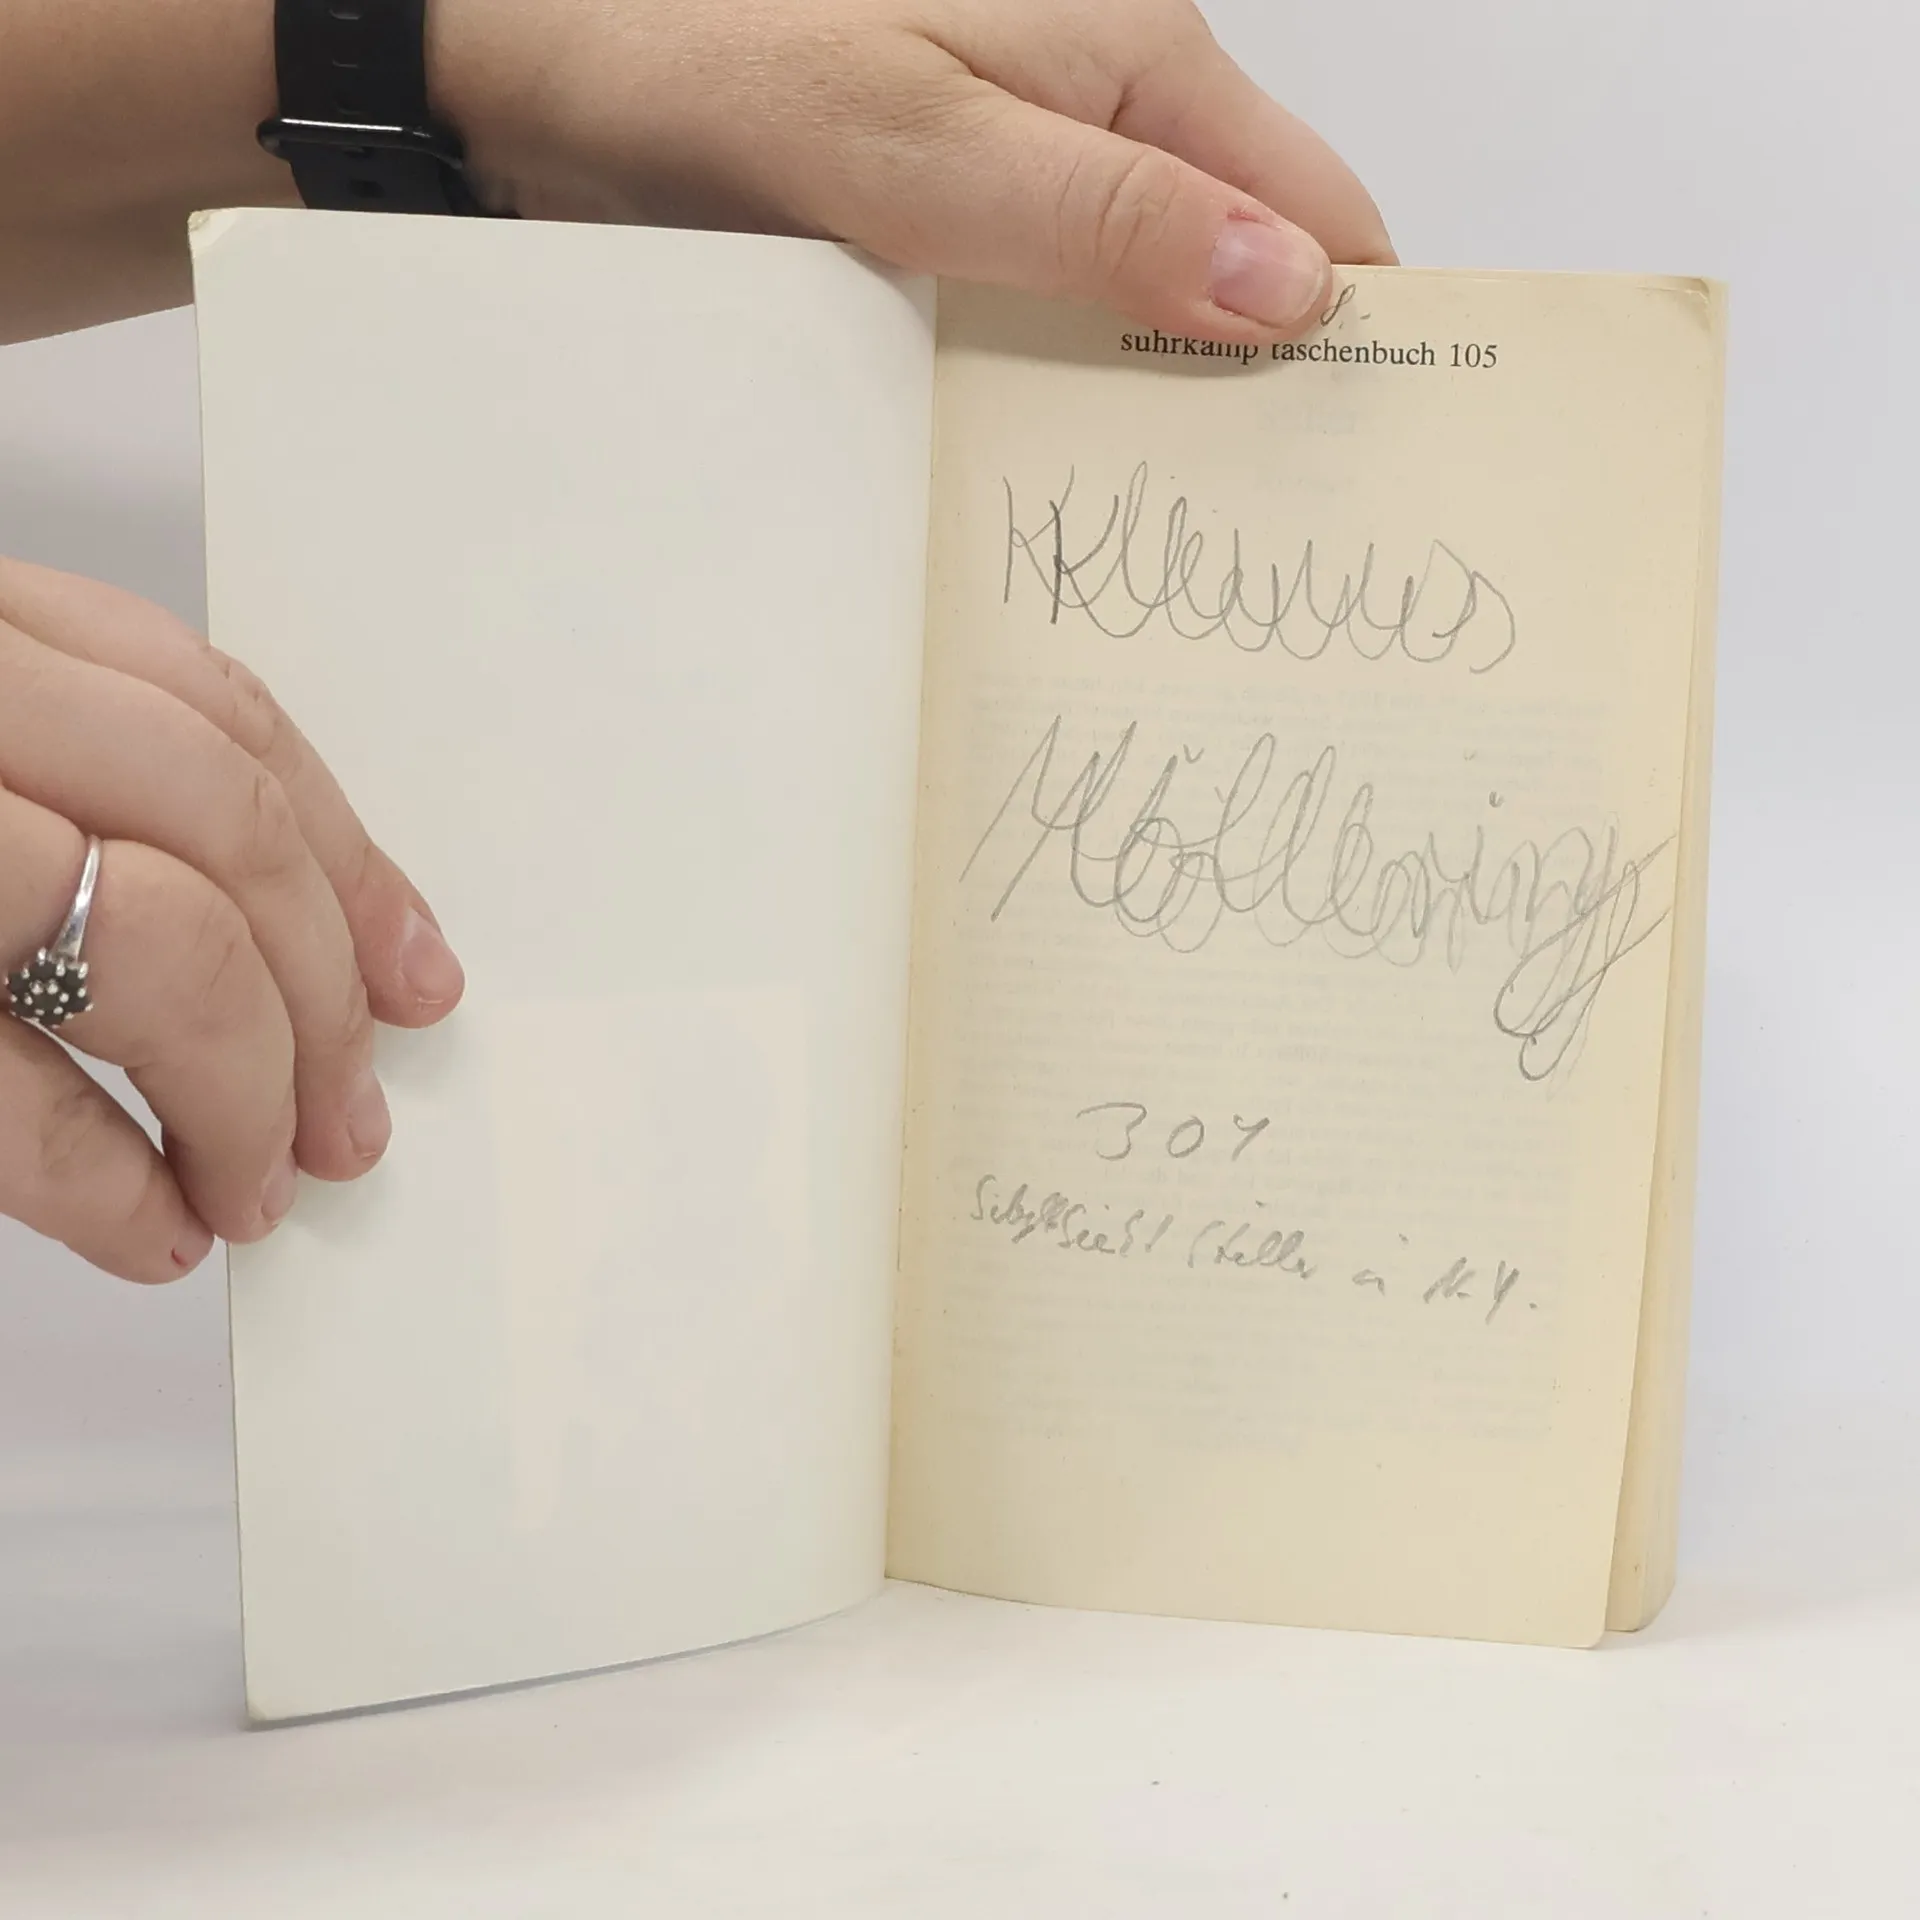 8.-
suhrkamp taschenbuch 105
Klaus
Möllering
307
Sibylle sieht Stiller in N.Y.